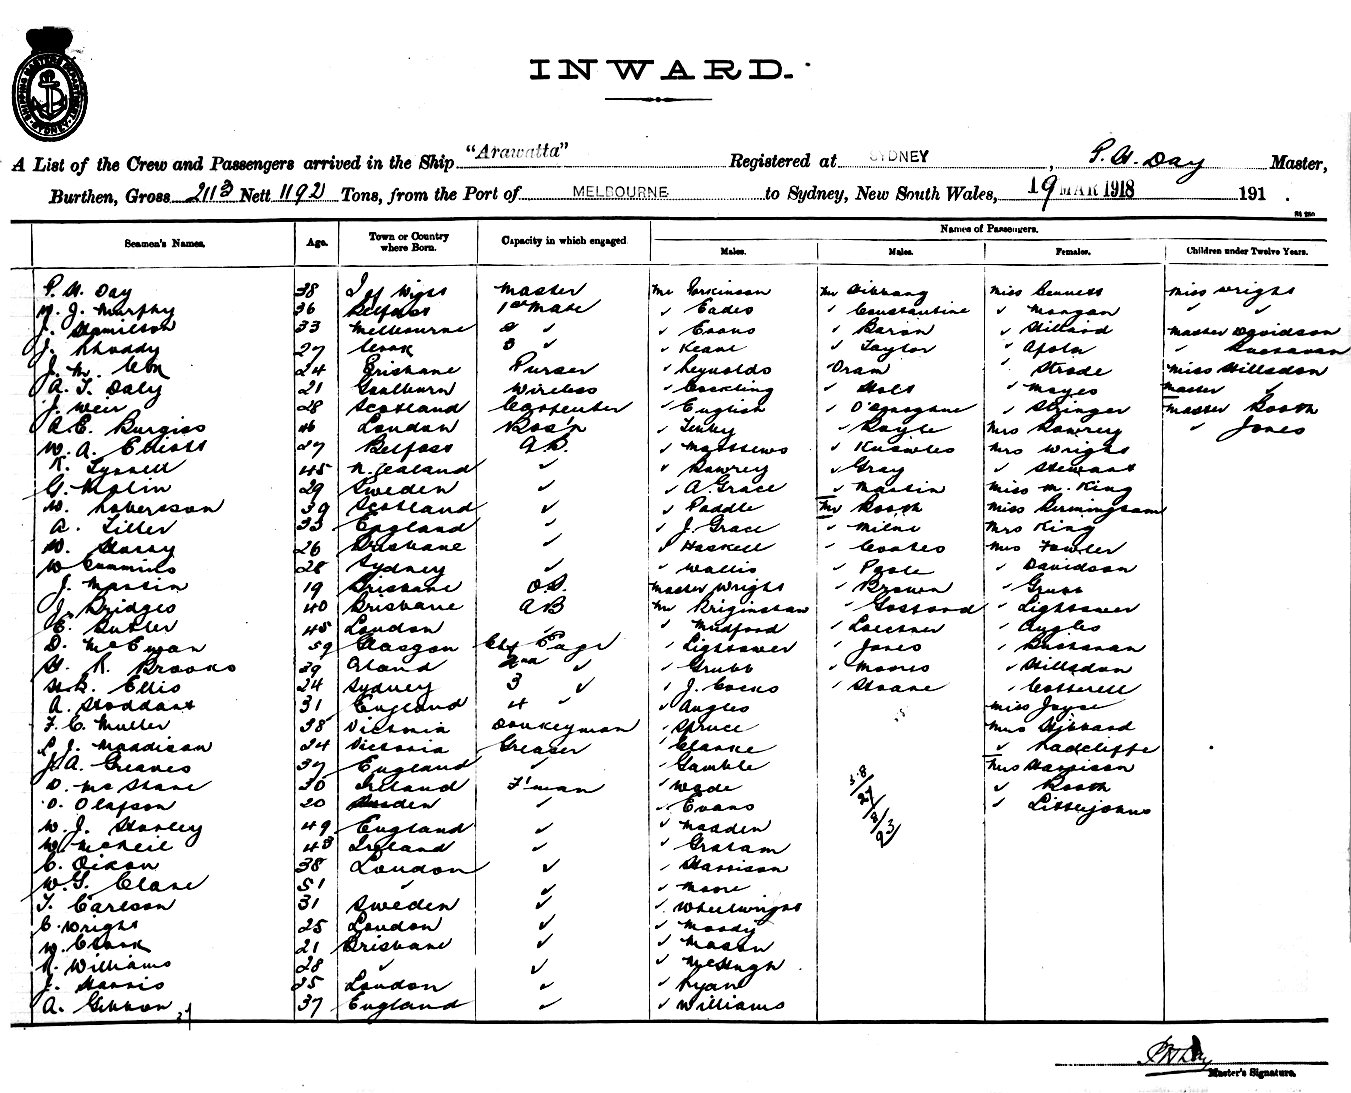 INWARD.
SHIPPING MASTERS DEPARTMENT SYDNEY
A List of the Crew and Passengers arrived in the Ship "Arawatta" Registered at SYDNEY, P. H. Day Master,
Burthen, Gross 2113 Nett 1192 Tons, from the Port of MELBOURNE to Sydney, New South Wales, 19 MAR 1918 191 .
Seamen's Names. Age. Town or Country where Born. Capacity in which engaged. Names of Passengers.
Males. Males. Females. Children under Twelve Years.
P. H. Day 38 I of Wight Master Mr Parkinson Mr Miss Bennett Miss Wright
M. J. Murphy 36 Belfast 1st Mate " Eades " Constantine " Morgan " "
J. Hamilton 33 Melbourne 2 " " Evans " Baron " Hillard Master Davidson
J. 27 Cork 3 " " Keane " Taylor " " Buchanan
J. M. 24 Brisbane Purser " Reynolds Oram " Strode Miss Hillsdon
A. T. Daly 21 Goulburn Wireless " " Holt " Mayes Master "
J. Weir 28 Scotland Carpenter " English " " Stringer Master Booth
A. E. Burgiss 46 London Bos'n " " Boyle Mrs Bowrey " Jones
W. A. Elliott 27 Belfast A.B. " Matthews " Knowles Mrs Wright
R. Tyrrell 45 N. Zealand " " Bowrey " Gray " Stewart
G. Malin 29 Sweden " " A. Grace " Martin Miss M. King
W. Robertson 39 Scotland " " Paddle Mr Booth Miss Birmingham
A. Tiller 33 England " " J. Grace " Milne Mrs King
W. 26 Brisbane " " Haskell " Coates Mrs Fowler
W Cummins 28 Sydney " " Wallis " Poole " Davidson
J. Martin 19 Brisbane O.S. Master Wright " Brown " Grubb
J. Bridges 40 Brisbane A B Mr Briginshaw " " Lightower
E. Butler 45 London " " Mudford " " Angles
D. McEwan 59 Glasgow Chf Engr " Lightower " Jones " Buchanan
H. R. Brooks 39 2nd " " Grubb " Moores " Hillsdon
H. B. Ellis 24 Sydney 3 " " J. " Sloane " Cotterell
A. Stoddart 31 England 4 " " Angles Miss Joyce
F. C. Muller 38 Victoria Donkeyman " Spruce Mrs Hibbard
J. Maddison 24 Victoria Greaser " Clarke " Radcliffe
J. A. Greaves 37 England " " Gamble Mrs Harrison
D. McShane 30 Ireland F'man " Wade " Booth
O. Olafson 20 Sweden " " Evans " Littlejohns
W. J. Stanley 49 England " " Madden
W. McNeil 43 Ireland " " Graham
C. Dixon 38 London " " Harrison
W. G. Clare 51 " " " Moore
T. Carlson 31 Sweden " " Wheelwright
C. Wright 25 London " " Moody
W. Clark 21 Brisbane " " Mason
R. Williams 28 " " " McHugh
J. Harris 25 London " " Ryan
A. Gibbon 37 England " " Williams
38/27/8/23
P H Day
Master's Signature.